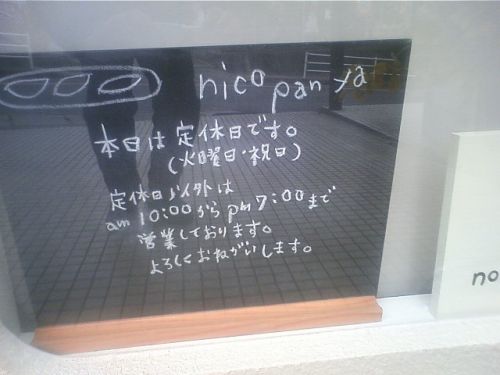 nico pan ya
本日は定休日です。
(火曜日・祝日)
定休日以外は
am 10:00から pm 7:00まで
営業しております。
よろしくおねがいします。
no